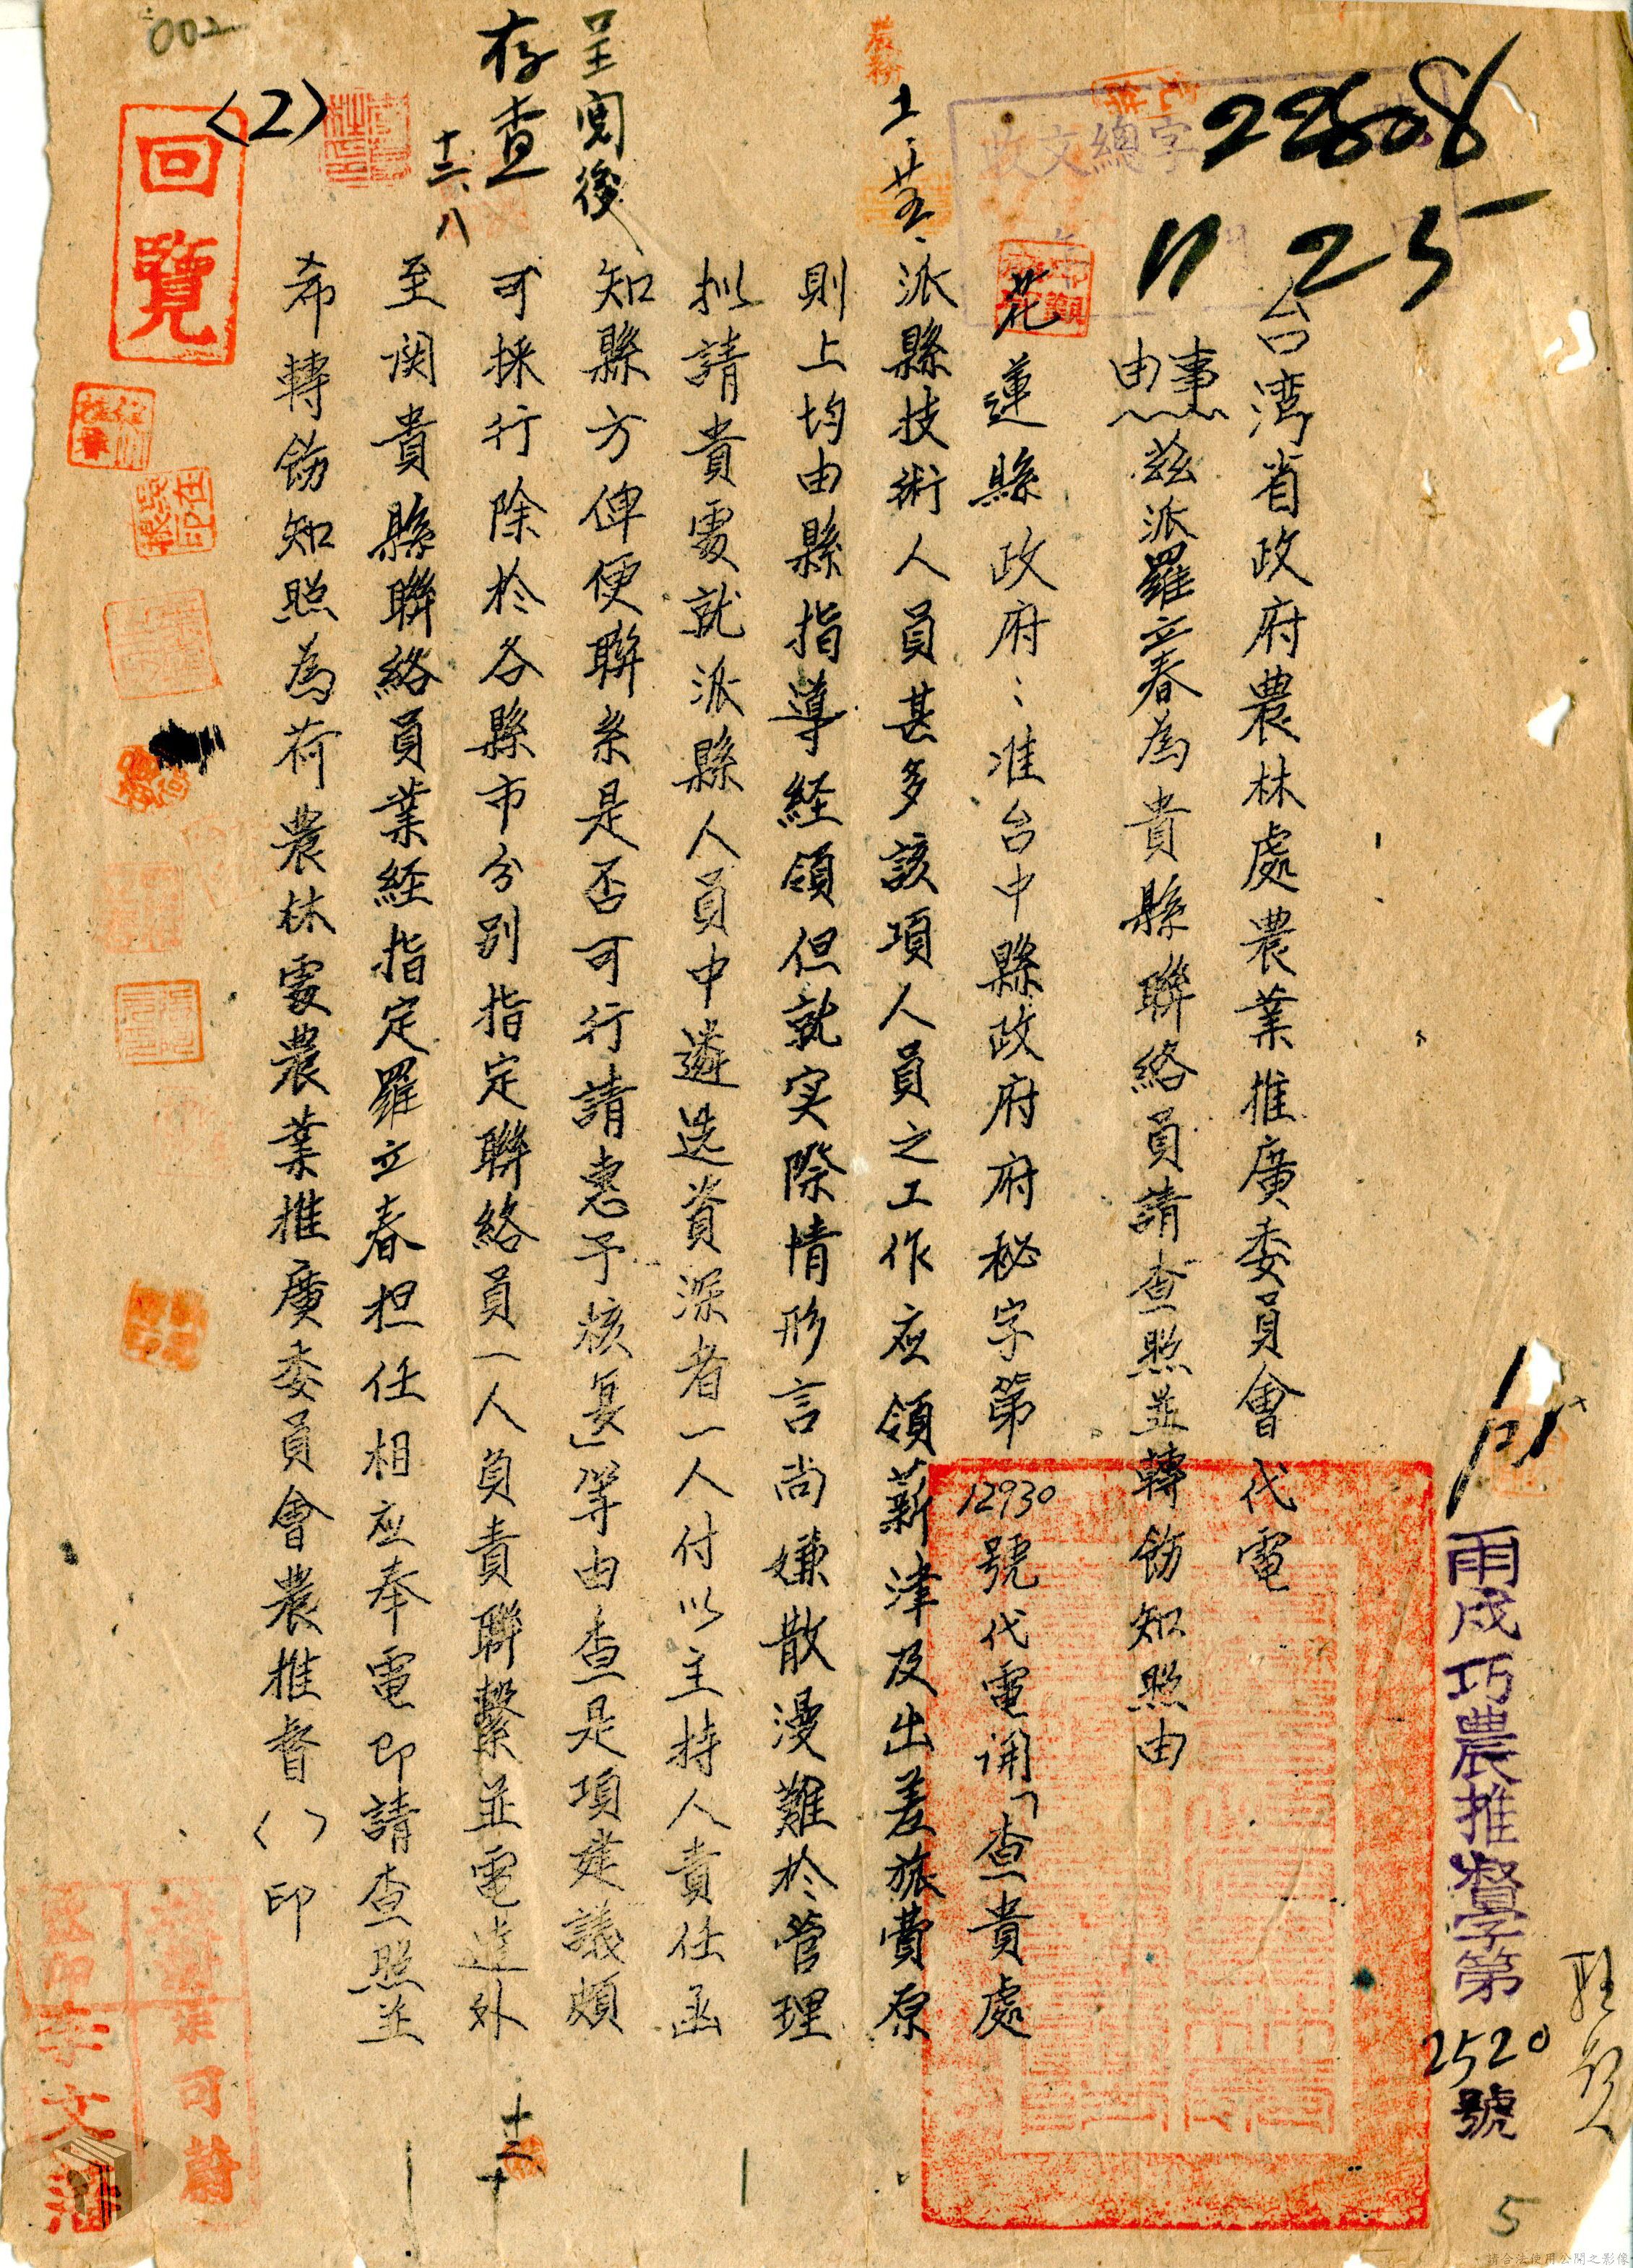 002
22608
收文總字 號
11 25
雨戌巧農推督字第2520號
台湾省政府農林處農業推廣委員會代電
事由
茲派羅立春為貴縣聯絡員請查照並轉飭知照由
花蓮縣政府：准台中縣政府府秘字第12930號代電開「查貴處
派縣技術人員甚多該項人員之工作應領薪津及出差旅費原
則上均由縣指導経領但就实際情形言尚嫌散漫難於管理
拟請貴處就派縣人員中遴选資深者一人付以主持人責任函
知縣方俾便聯系是否可行請惠予核复」等由查是項建議頗
可採行除於各縣市分別指定聯絡員一人負責聯繫並電進外
至関貴縣聯絡員業経指定羅立春担任相应奉電即請查照並
希轉飭知照為荷農林處農業推廣委員會農推督〈〉印
呈閱後
存查
十二、八
(2)
回覽
李文
可蔚
十二
5
請合法使用公開之影像